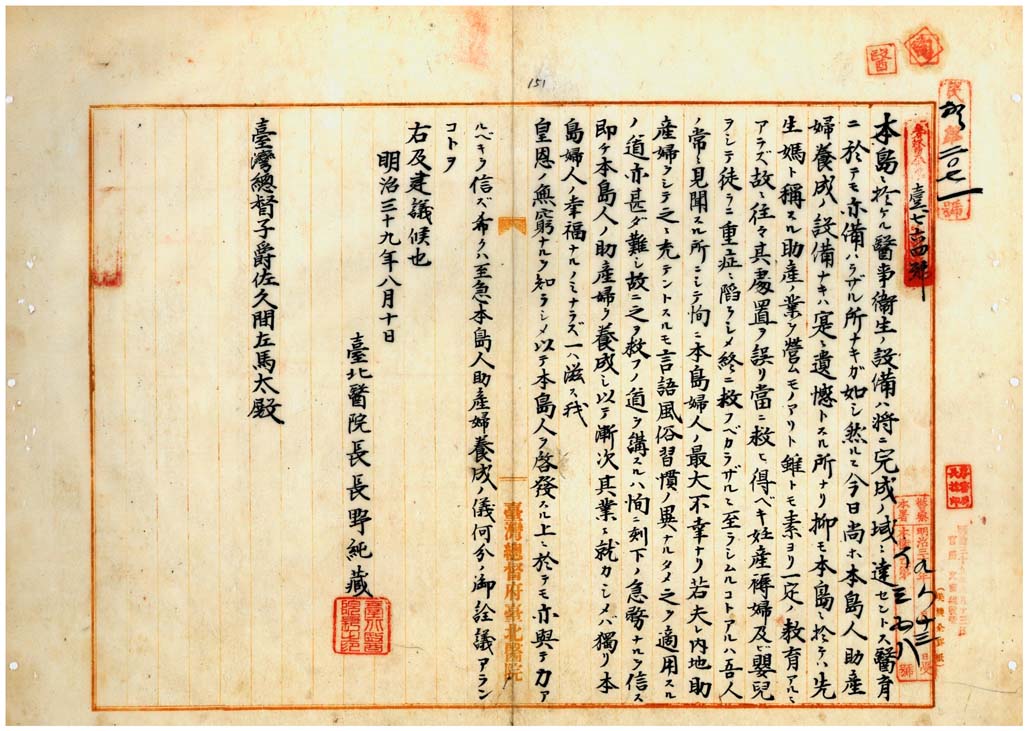 醫
151
臺七六四號
本島ニ於ケル醫事衛生ノ設備ハ將ニ完成ノ域ニ達セントス醫育
ニ於テモ亦備ハラザル所ナキガ如シ然ルニ今日尚ホ本島人助產
婦養成ノ設備ナキハ寔ニ遺憾トスル所ナリ抑モ本島ニ於テハ先
生媽ト稱スル助產ノ業ヲ營ムモノアリト雖トモ素ヨリ一定ノ教育アルニ
アラズ故ニ往々其處置ヲ誤リ當ニ救ヒ得ベキ妊產褥婦及ビ嬰兒
ヲシテ徒ラニ重症ニ陷ラシメ終ニ救フベカラザルニ至ラシムルコトアルハ吾人
ノ常ニ見聞スル所ニシテ恂ニ本島婦人ノ最大不幸ナリ若夫レ內地助
產婦ヲシテ之ニ充テントスルモ言語風俗習慣ノ異ナルタメ之ヲ適用スル
ノ道亦甚ダ難シ故ニ之ヲ救フノ道ヲ講スルハ恂ニ刻下ノ急務ナルヲ信ス
即チ本島人ノ助產婦ヲ養成シ以テ漸次其業ニ就カシメバ獨リ本
島婦人ノ幸福ナルノミナラズ一ハ滋ス我
皇恩ノ無窮ナルヲ知ラシメ以テ本島人ヲ啓發スル上ニ於テモ亦與テ力ア
ルベキヲ信ズ希クハ至急本島人助產婦養成ノ儀何分ノ御詮議アラン
コトヲ
右及建議候也
明治三十九年八月十日
臺北醫院長長野純藏
臺灣總督子爵佐久間左馬太殿
臺灣總督府臺北醫院